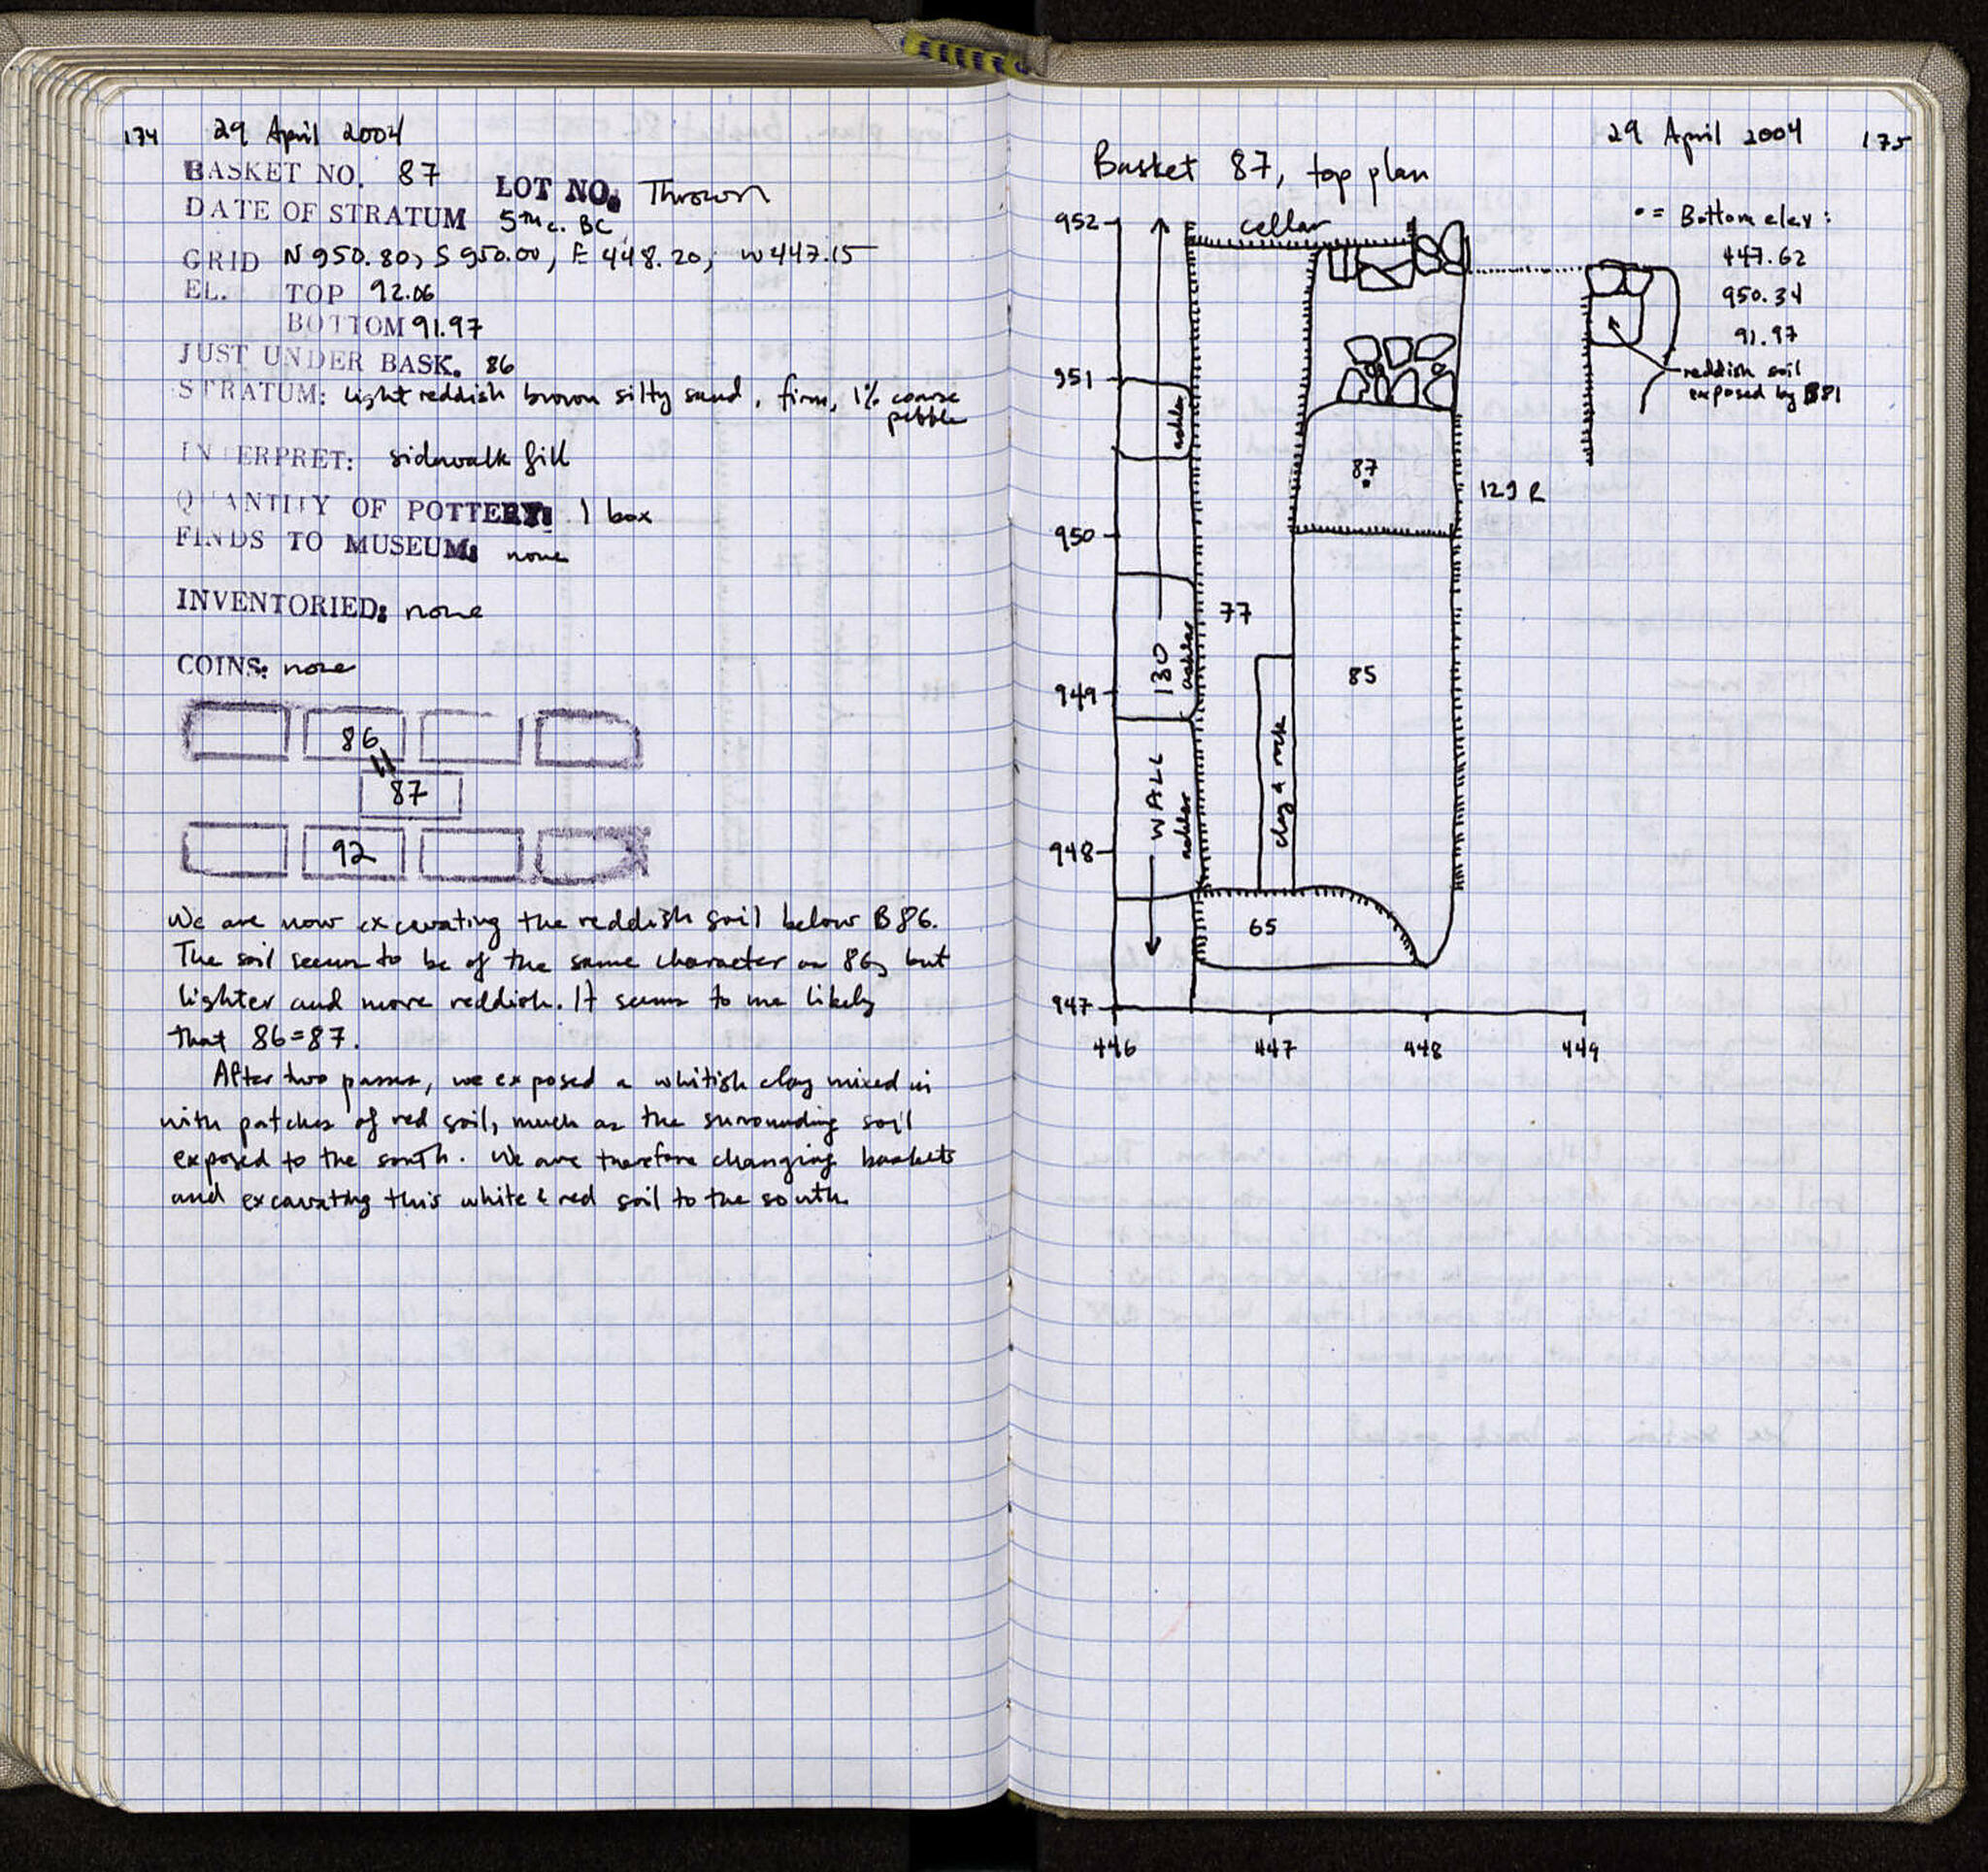 174 29 April 2004
BASKET NO. 87 LOT NO. Thrown
DATE OF STRATUM 5th c. BC
GRID N 950.80, S 950.00, E 448.20, W 447.15
EL. TOP 92.06
BOTTOM 91.97
JUST UNDER BASK. 86
STRATUM: light reddish brown silty sand, firm, 1% coarse
pebble
INTERPRET: sidewalk fill
QUANTITY OF POTTERY: 1 box
FINDS TO MUSEUM: none
INVENTORIED: none
COINS: none
86
87
92
We are now excavating the reddish soil below B86.
The soil seems to be of the same character as 86, but
lighter and more reddish. It seems to me likely
that 86=87.
After two passes, we exposed a whitish clay mixed in
with patches of red soil, much as the surrounding soil
exposed to the south. We are therefore changing baskets
and excavating this white & red soil to the south.
29 April 2004 175
Basket 87, top plan
• = Bottom elev:
447.62
950.34
91.97
reddish soil
exposed by B81
952
cellar
951
ashlar
87
129 R
950
77
130
ashlar
85
949
clay & rock
WALL
ashlar
948
65
947
446 447 448 449